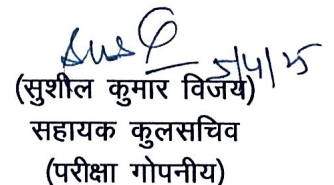 5/4/25
(सुशील कुमार विजय)
सहायक कुलसचिव
(परीक्षा गोपनीय)